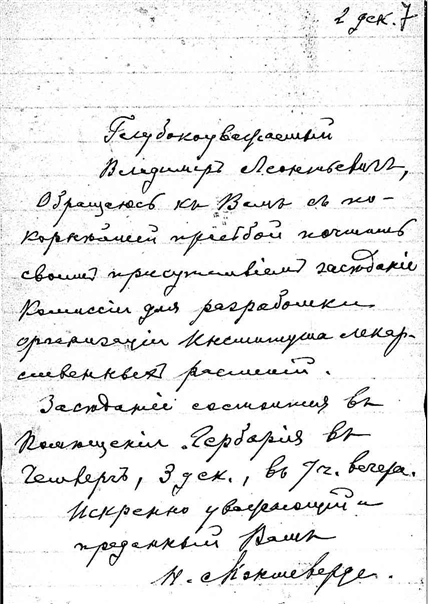 2 дек. 7
Глубокоуважаемый
Владимиръ Леонтьевичъ,
Обращаюсь къ Вамъ съ по-
корнѣйшей просьбой почтить
своимъ присутствіемъ засѣданіе
Комиссіи для разработки
организаціи Института лекар-
ственныхъ растеній.
Засѣданіе состоится въ
помѣщеніи Гербарія въ
Четвергъ, 3 дек., въ 7 ч. вечера.
Искренно уважающій и
преданный Вамъ
Н. Монтеверде.